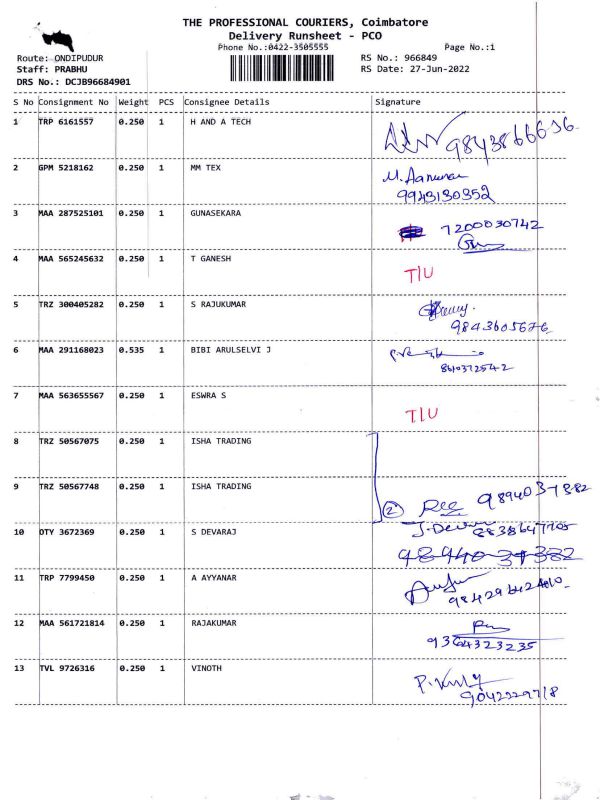 THE PROFESSIONAL COURIERS, Coimbatore
Delivery Runsheet - PCO
Phone No.:0422-3505555 Page No.:1
Route: ONDIPUDUR RS No.: 966849
Staff: PRABHU RS Date: 27-Jun-2022
DRS No.: DCJB96684901
S No Consignment No Weight PCS Consignee Details Signature
1 TRP 6161557 0.250 1 H AND A TECH
2 GPM 5218162 0.250 1 MM TEX
9943130352
3 MAA 287525101 0.250 1 GUNASEKARA 7200030742
4 MAA 565245632 0.250 1 T GANESH T/U
5 TRZ 300405282 0.250 1 S RAJUKUMAR
9843605676
6 MAA 291168023 0.535 1 BIBI ARULSELVI J
7 MAA 563655567 0.250 1 ESWRA S T/U
8 TRZ 50567075 0.250 1 ISHA TRADING
9 TRZ 50567748 0.250 1 ISHA TRADING
2
10 OTY 3672369 0.250 1 S DEVARAJ
11 TRP 7799450 0.250 1 A AYYANAR
12 MAA 561721814 0.250 1 RAJAKUMAR
9364323235
13 TVL 9726316 0.250 1 VINOTH